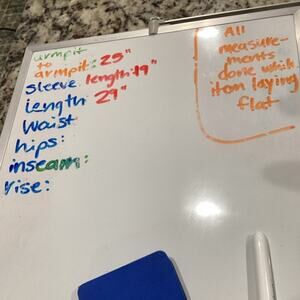 armpit
to
armpit: 25"
sleeve length: 19"
length 29"
Waist
hips:
inseam:
rise:
All
measure-
ments
done while
item laying
flat